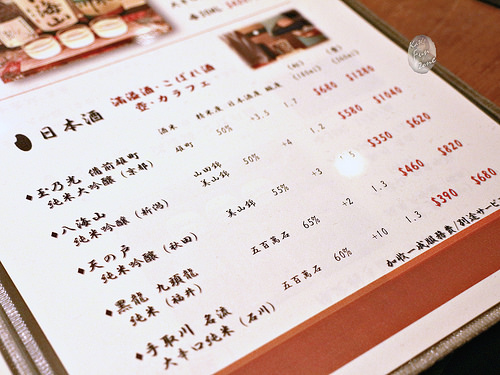 日本酒
滿溢酒・こぼれ酒
壺・カラフェ
酒米 精米度 日本酒度 酸度 (杯) (壺)
◆玉乃光 備前雄町 雄町 50% +3.5 1.7 $680 $1280
純米大吟醸 (京都)
◆八海山 山田錦 50% +4 1.2 $580 $1040
純米吟醸 (新潟) 美山錦
◆天の戸 美山錦 55% +3 $350 $620
純米吟醸 (秋田)
◆黑龍 九頭龍 五百萬石 65% +2 1.3 $460 $820
純米 (福井)
◆手取川 名流 五百萬石 60% +10 1.3 $390 $680
大辛口純米 (石川)
如收一成服務費/別途サービ